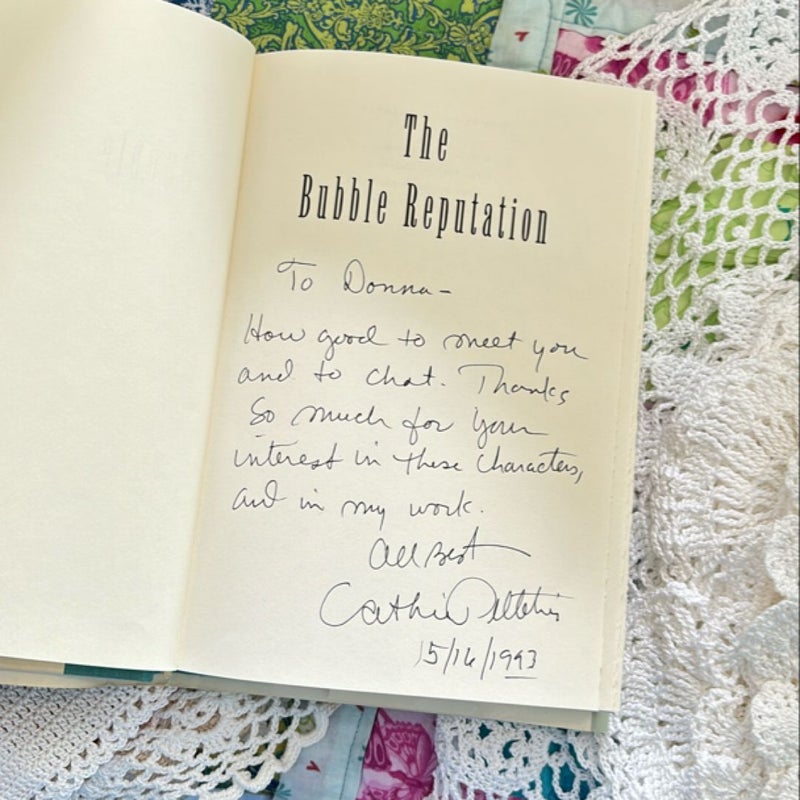 The
Bubble Reputation
To Donna –
How good to meet you
and to chat. Thanks
so much for your
interest in these characters,
and in my work.
All Best
Cathie Pelletier
5/16/1993